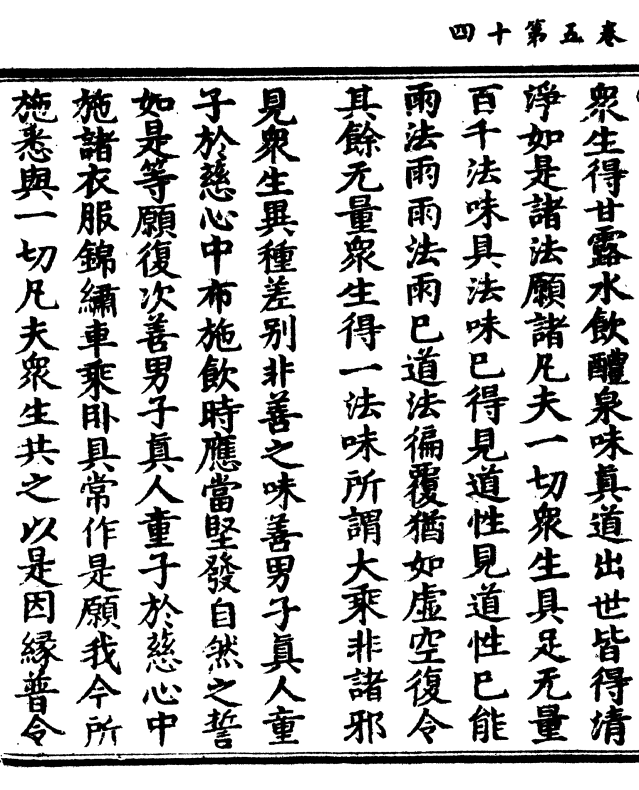 卷五第十四
衆生得甘露水飲醴泉味真道出世皆得清
淨如是諸法願諸凡夫一切衆生具足无量
百千法味具法味已得見道性見道性已能
雨法雨雨法雨已道法徧覆猶如虛空復令
其餘无量衆生得一法味所謂大乘非諸邪
見衆生異種差别非善之味善男子真人童
子於慈心中布施飲時應當堅發自然之誓
如是等願復次善男子真人童子於慈心中
施諸衣服錦繡車乘卧具常作是願我今所
施悉與一切凡夫衆生共之以是因緣普令